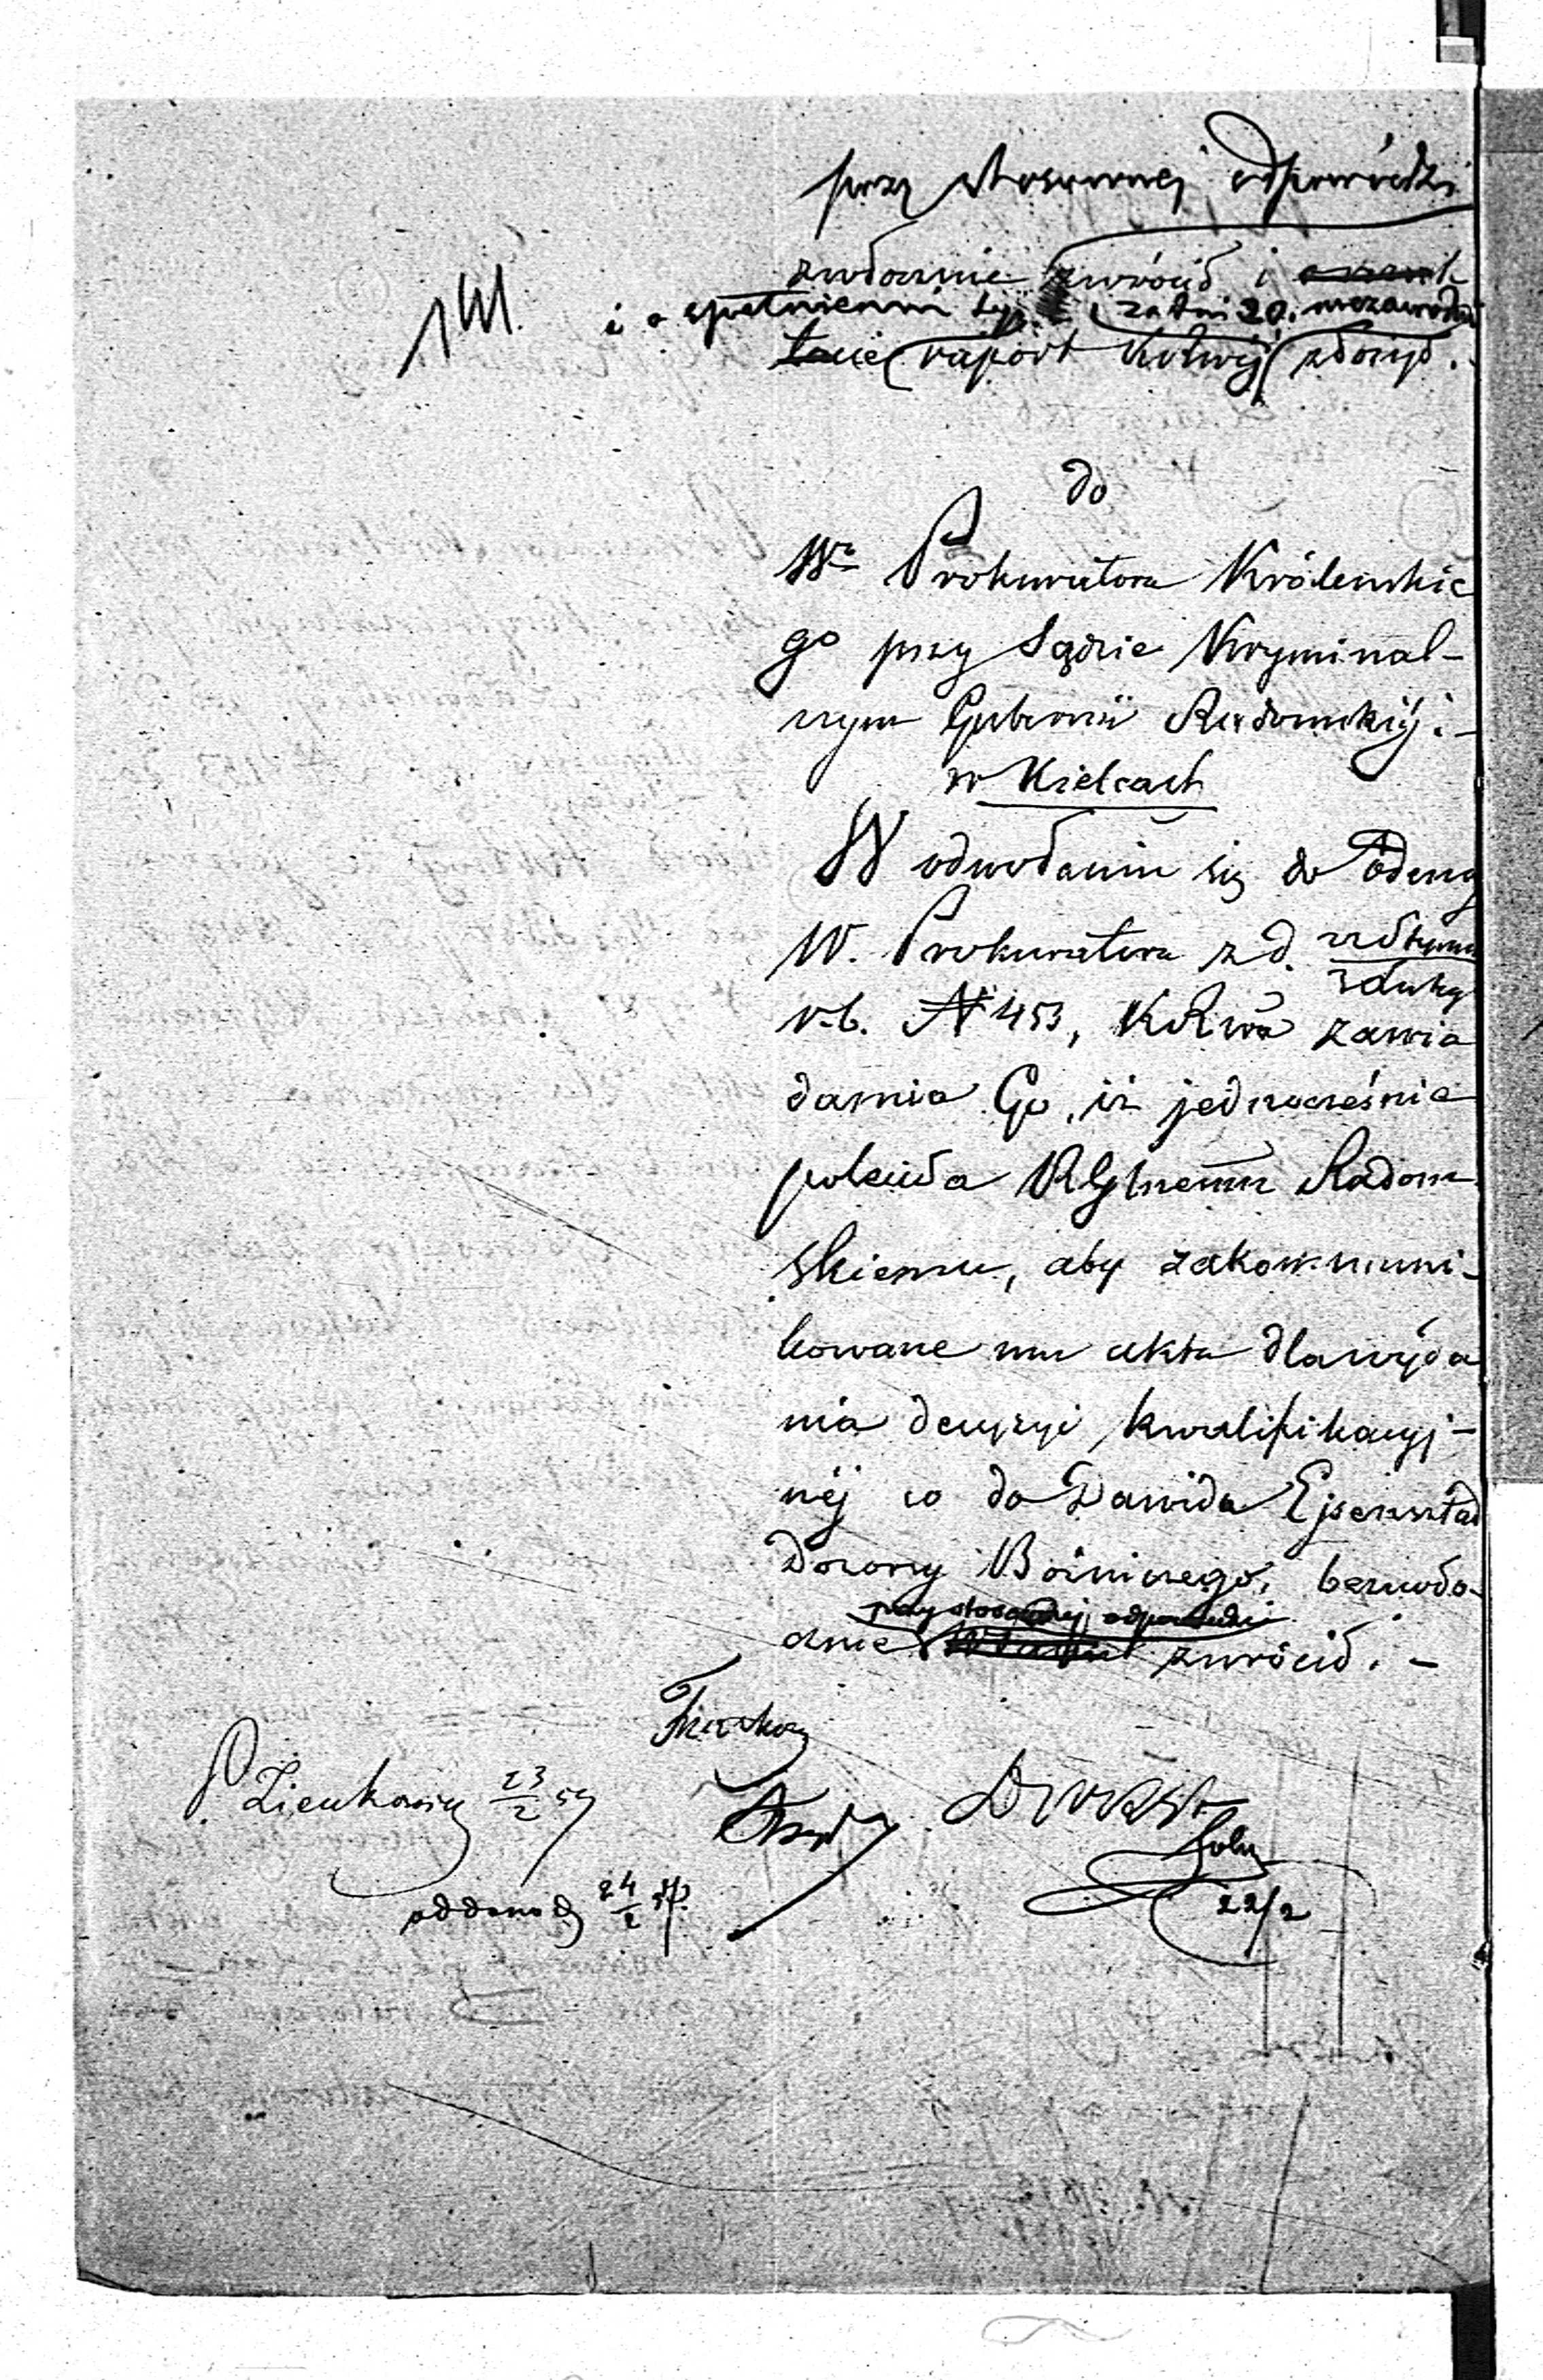 przy stosownej odpowiedzi
zwłocznie zwrócił i
i o spełnieniu za dni 20. niezawodnie
raport Kwitwij złożył.
do
Wo Prokuratora Królewskie
go przy Sądzie Kryminal-
nym Gubernii Radomskiej
w Kielcach
W odwołaniu się do Odezwy
W. Prokuratora z d.
r. b. N 453, KRwa zawia
damia Go, iż jednocześnie
poleciła RGbnemu Radom
skiemu, aby zakommuni-
kowane mu akta dla wyda
nia decyzyi kwalifikacyj-
néj co do Dawida Ejsensztad
Dozoru Bożniczego, bezzwło-
cznie
przy stosownej odpowiedzi
zwrócił. -
P. Zienkowicz 23/2 59
oddano d 24/2 59.
22/2